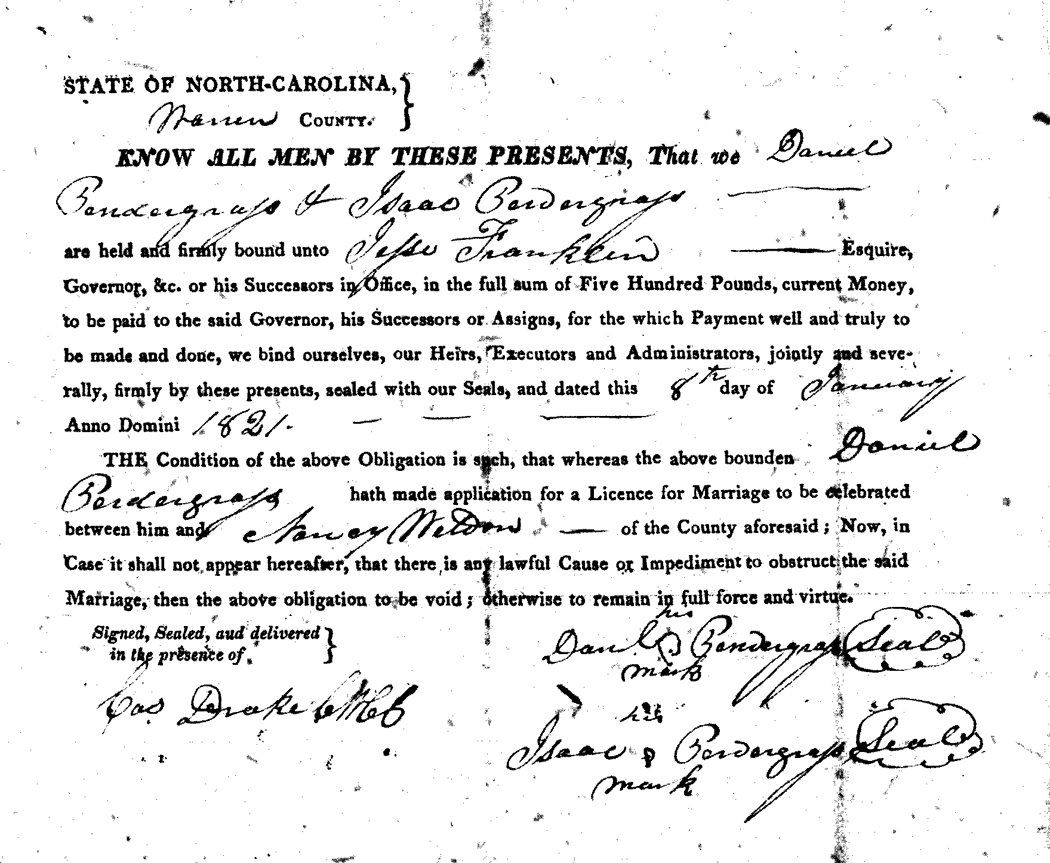 STATE OF NORTH-CAROLINA,
Warren COUNTY.
KNOW ALL MEN BY THESE PRESENTS, That we Daniel
Pendergrass & Isaac Pendergrass
are held and firmly bound unto Jesse Franklin Esquire,
Governor, &c. or his Successors in Office, in the full sum of Five Hundred Pounds, current Money,
to be paid to the said Governor, his Successors or Assigns, for the which Payment well and truly to
be made and done, we bind ourselves, our Heirs, Executors and Administrators, jointly and seve-
rally, firmly by these presents, sealed with our Seals, and dated this 8th day of January
Anno Domini 1821.
THE Condition of the above Obligation is such, that whereas the above bounden Daniel
Pendergrass hath made application for a Licence for Marriage to be celebrated
between him and Nancy Weldon of the County aforesaid; Now, in
Case it shall not appear hereafter, that there is any lawful Cause or Impediment to obstruct the said
Marriage, then the above obligation to be void; otherwise to remain in full force and virtue.
Signed, Sealed, aud delivered
in the presence of,
his
Danl Pendergrass Seal
mark
Cas. Drake
his
Isaac Pendergrass Seal
mark